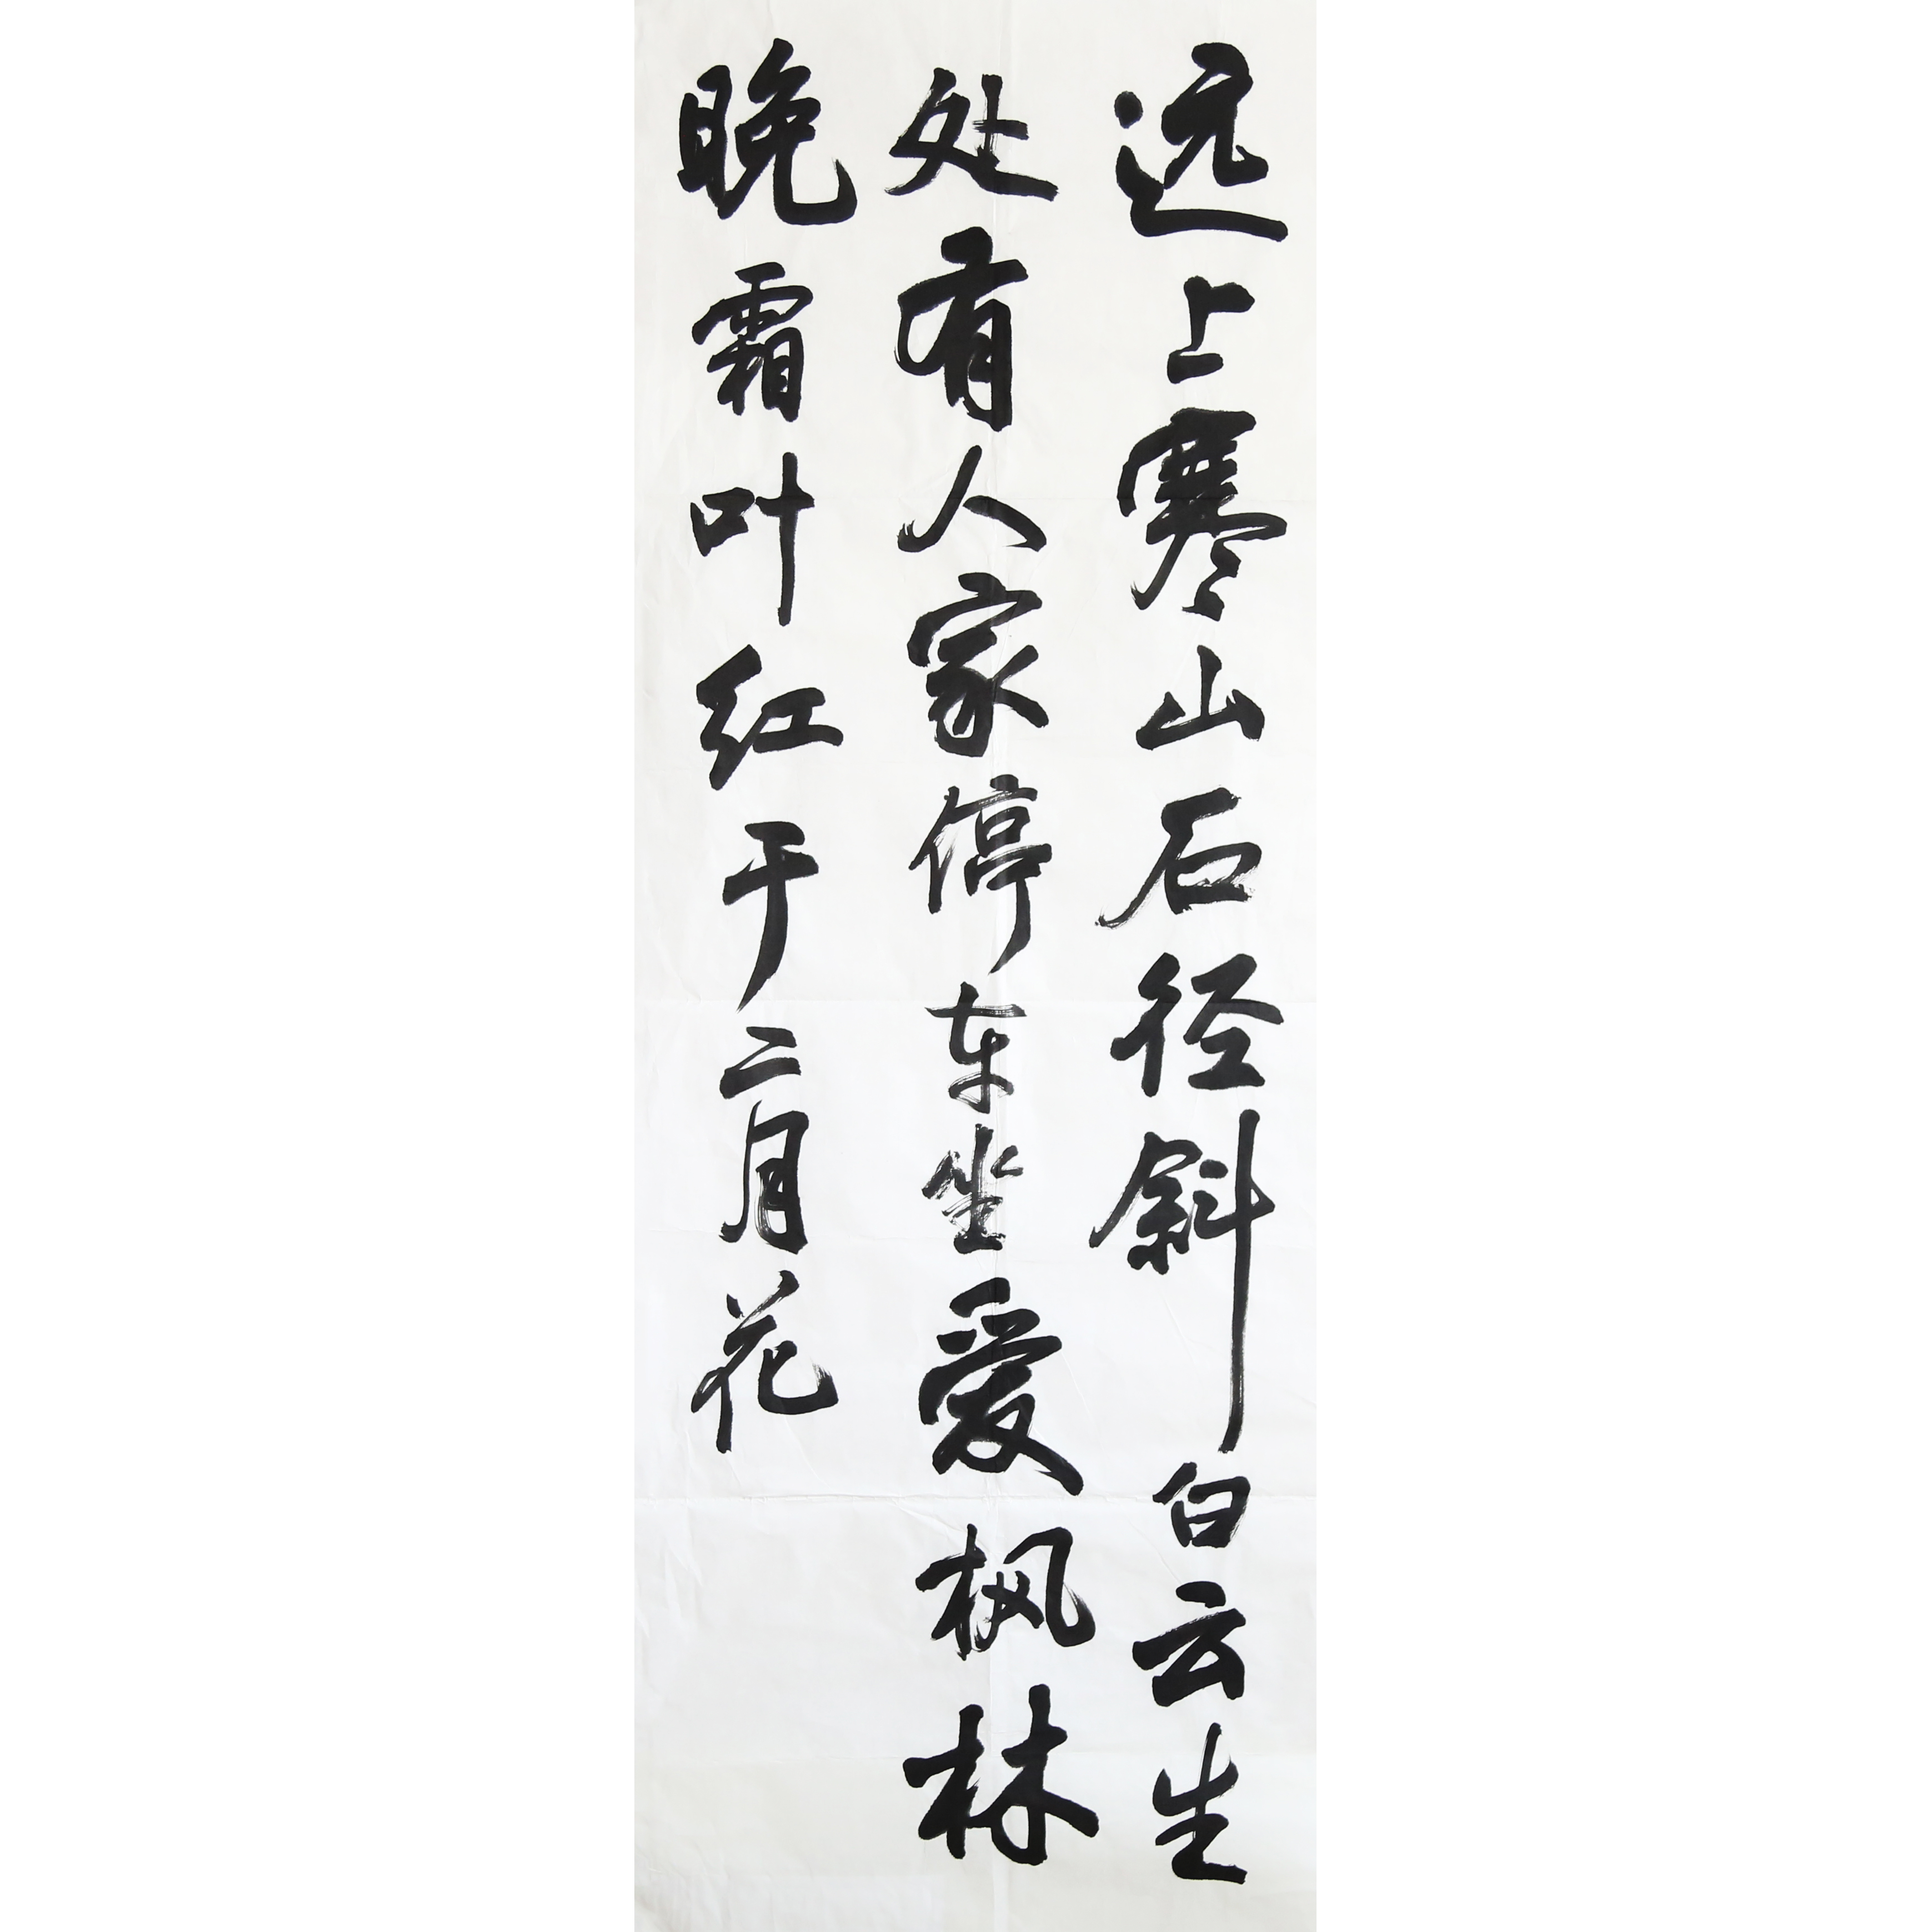 远上寒山石径斜白云生
处有人家停车坐爱枫林
晚霜叶红于二月花